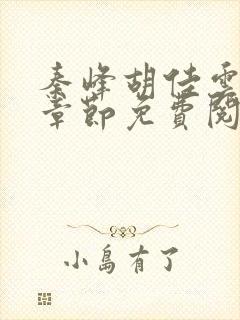 秦峰胡佳雪
章節免費閱
小島有了